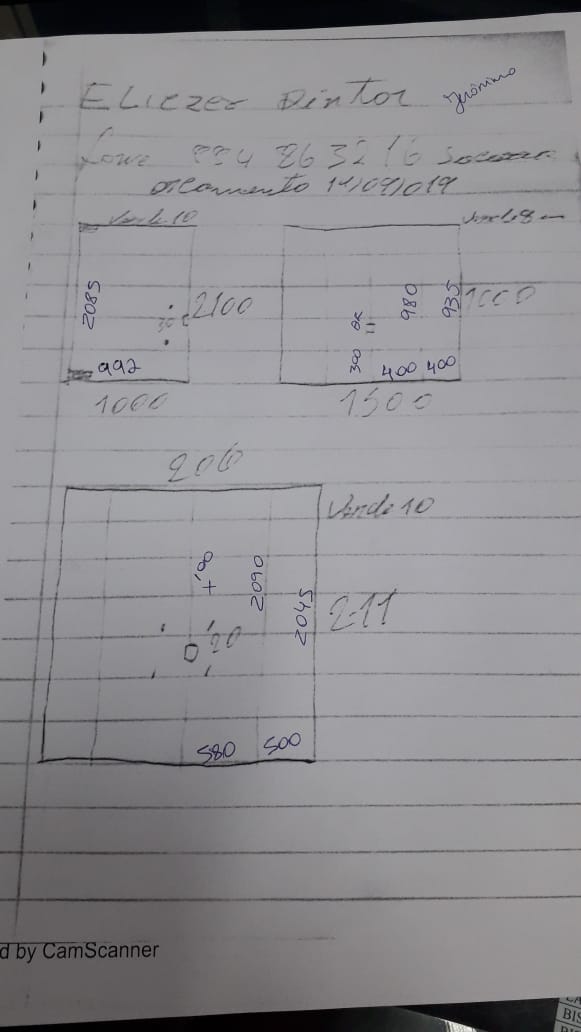 Eliezer Pintor Jerônimo
Fone 994 863216
orcamento 14/09/019
Verde 10
Verde 8
2085
2100
992
1000
300 ok
980
935
1000
400
400
1500
206
Verde 10
2090
2045
2-11
20
580
500
d by CamScanner
BIS